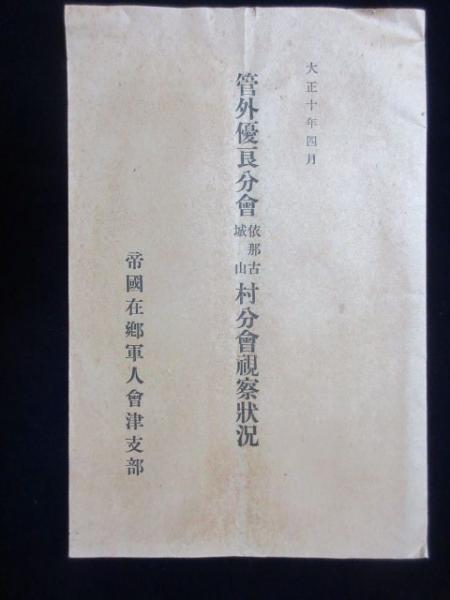 大正十年四月
管外優良分會 依那古 城山 村分會視察狀況
帝國在鄕軍人會津支部